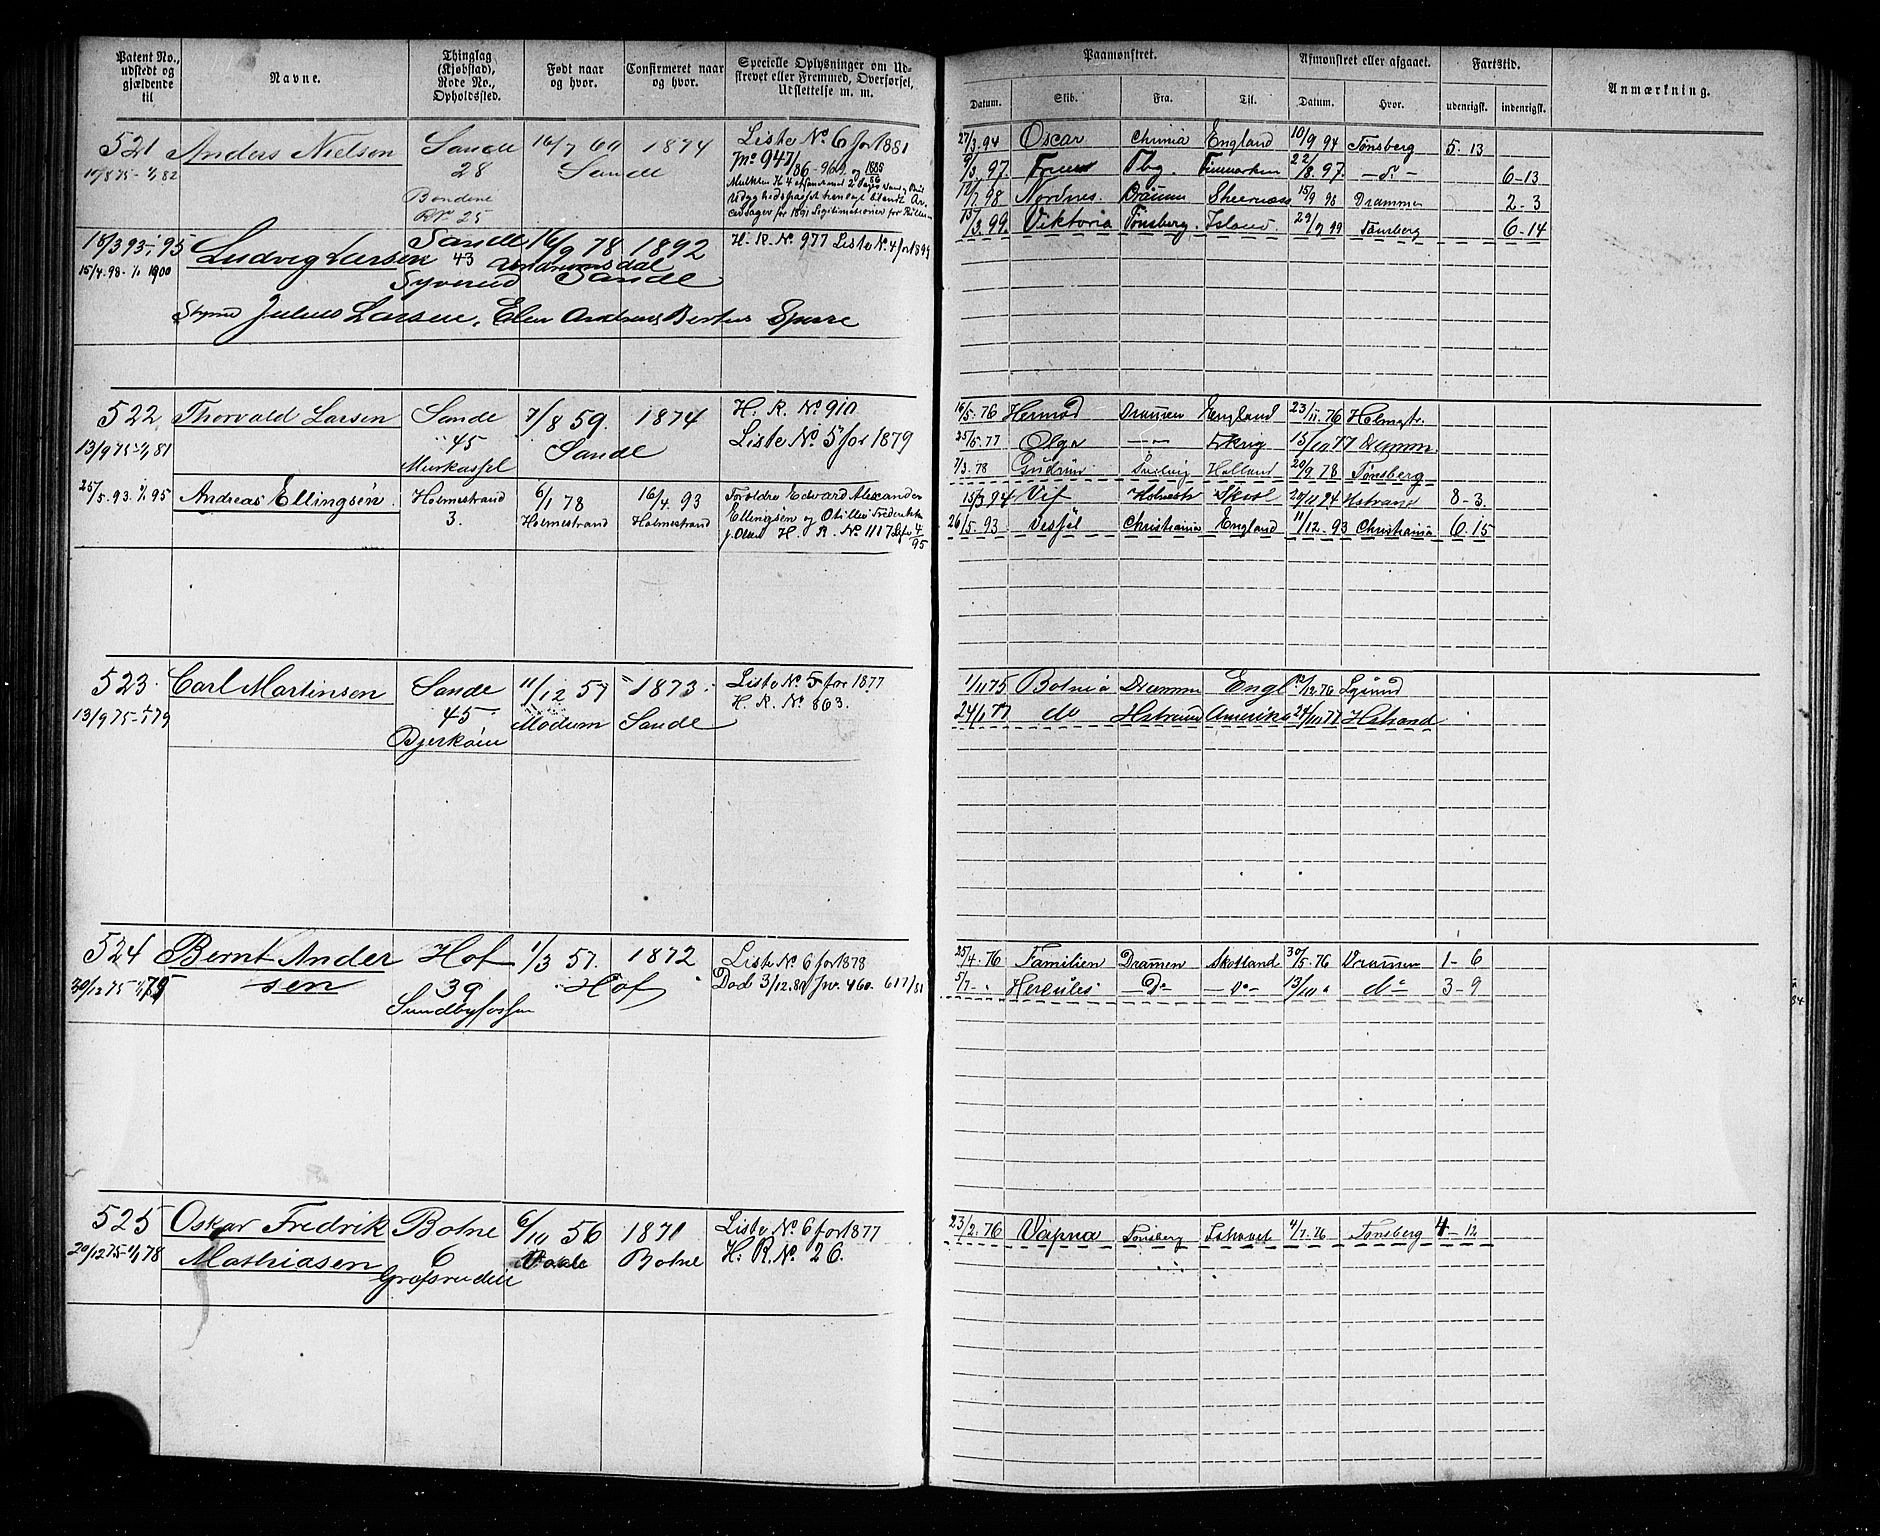 Patent No., udstedt og gjældende til
Navne.
Thinglag (Kjøbstad), Rode No., Opholdssted.
Født naar og hvor.
Confirmeret naar og hvor.
Specielle Oplysninger om Udskrevet eller Fremmed, Overførsel, Udslettelse m. m.
Paamønstret.
Datum.
Skib.
Fra.
Til.
Afmønstret eller afgaaet.
Datum.
Hvor.
Fartstid.
udenrigsk.
indenrigsk.
Anmærkning.
521 Anders Nielsen Sande 16/7 60 1874 Liste No 6 for 1881
28 Sande
Bondene
No 25
Ludvig Larsen Sande 16/9 78 1892 H. R. No 977 Liste No 4 for 1899
15/4.98-1/1 1900 43
Syverud Sande
Julius Larsen, Elen Andrea
27/3.94 Oscar Chrinia England 10/9 94 Tønsberg 5.13
97 Tbg. Finmarken 22/8.97 6-13
98 Nordnes 15/9 98 Drammen 2-3
15/3.99 Viktoria Tønsberg Island 29/9 99 Tønsberg 6-14
522 Thorvald Larsen Sande 7/8 59. 1874 H. R. No 910
13/9 75-1/1 81 45 Sande Liste No 5 for 1879
25/5.93.1/1 95 Andreas Ellingsen. Holmestrand 6/1 78 16/4.93 Forældre Edvard Alexander
3. Holmestrand Holmestrand Ellingsen og Otillie Frederikke
H. R. No 1117
16/5.76 Hermod Dramen England 23/11.76 Holmstr.
25/5.77 Olga 15/10 77 Dramm.
1/3.78 Gudrun Svelvig Holland 20/9 78 Tønsberg
15/3 94 Vif Holmestr 94 Hstrand 8-3.
26/5.93 Christiania England 11/12.93 Christiania 6.15
523 Carl Martinsen Sande 11/12 57 1873. Liste No 5 for 1877
13/9 75-1/1 79 45 Modum Sande H. R. No 863.
1/11 75 Botnia Dramm Engl 76
24/1 77 do Hstrand Amerika 24/10 77 Hstrand
524 Bernt Ander Hof 1/3 57. 1872 Liste No 6 for 1878
20/12 75-1/1 79 sen 39 Hof Død 3/12.80 Jnr. 460. 617/81
Sundbyfossen
25/4.76 Familien Dramen Skotland 30/5.76 Dramen 1-6
5/7 - " Hercules - Do - - do - 13/10 " do 3-9
525 Oskar Fredrik Botne 6/10 56 1871 Liste No 6 for 1877
20/12 75-1/1 78 Mathiasen 6 Botne H. R. No 26.
23/2.76 Vapna Tønsberg Ishavet 4/7.76 Tønsberg 4-12